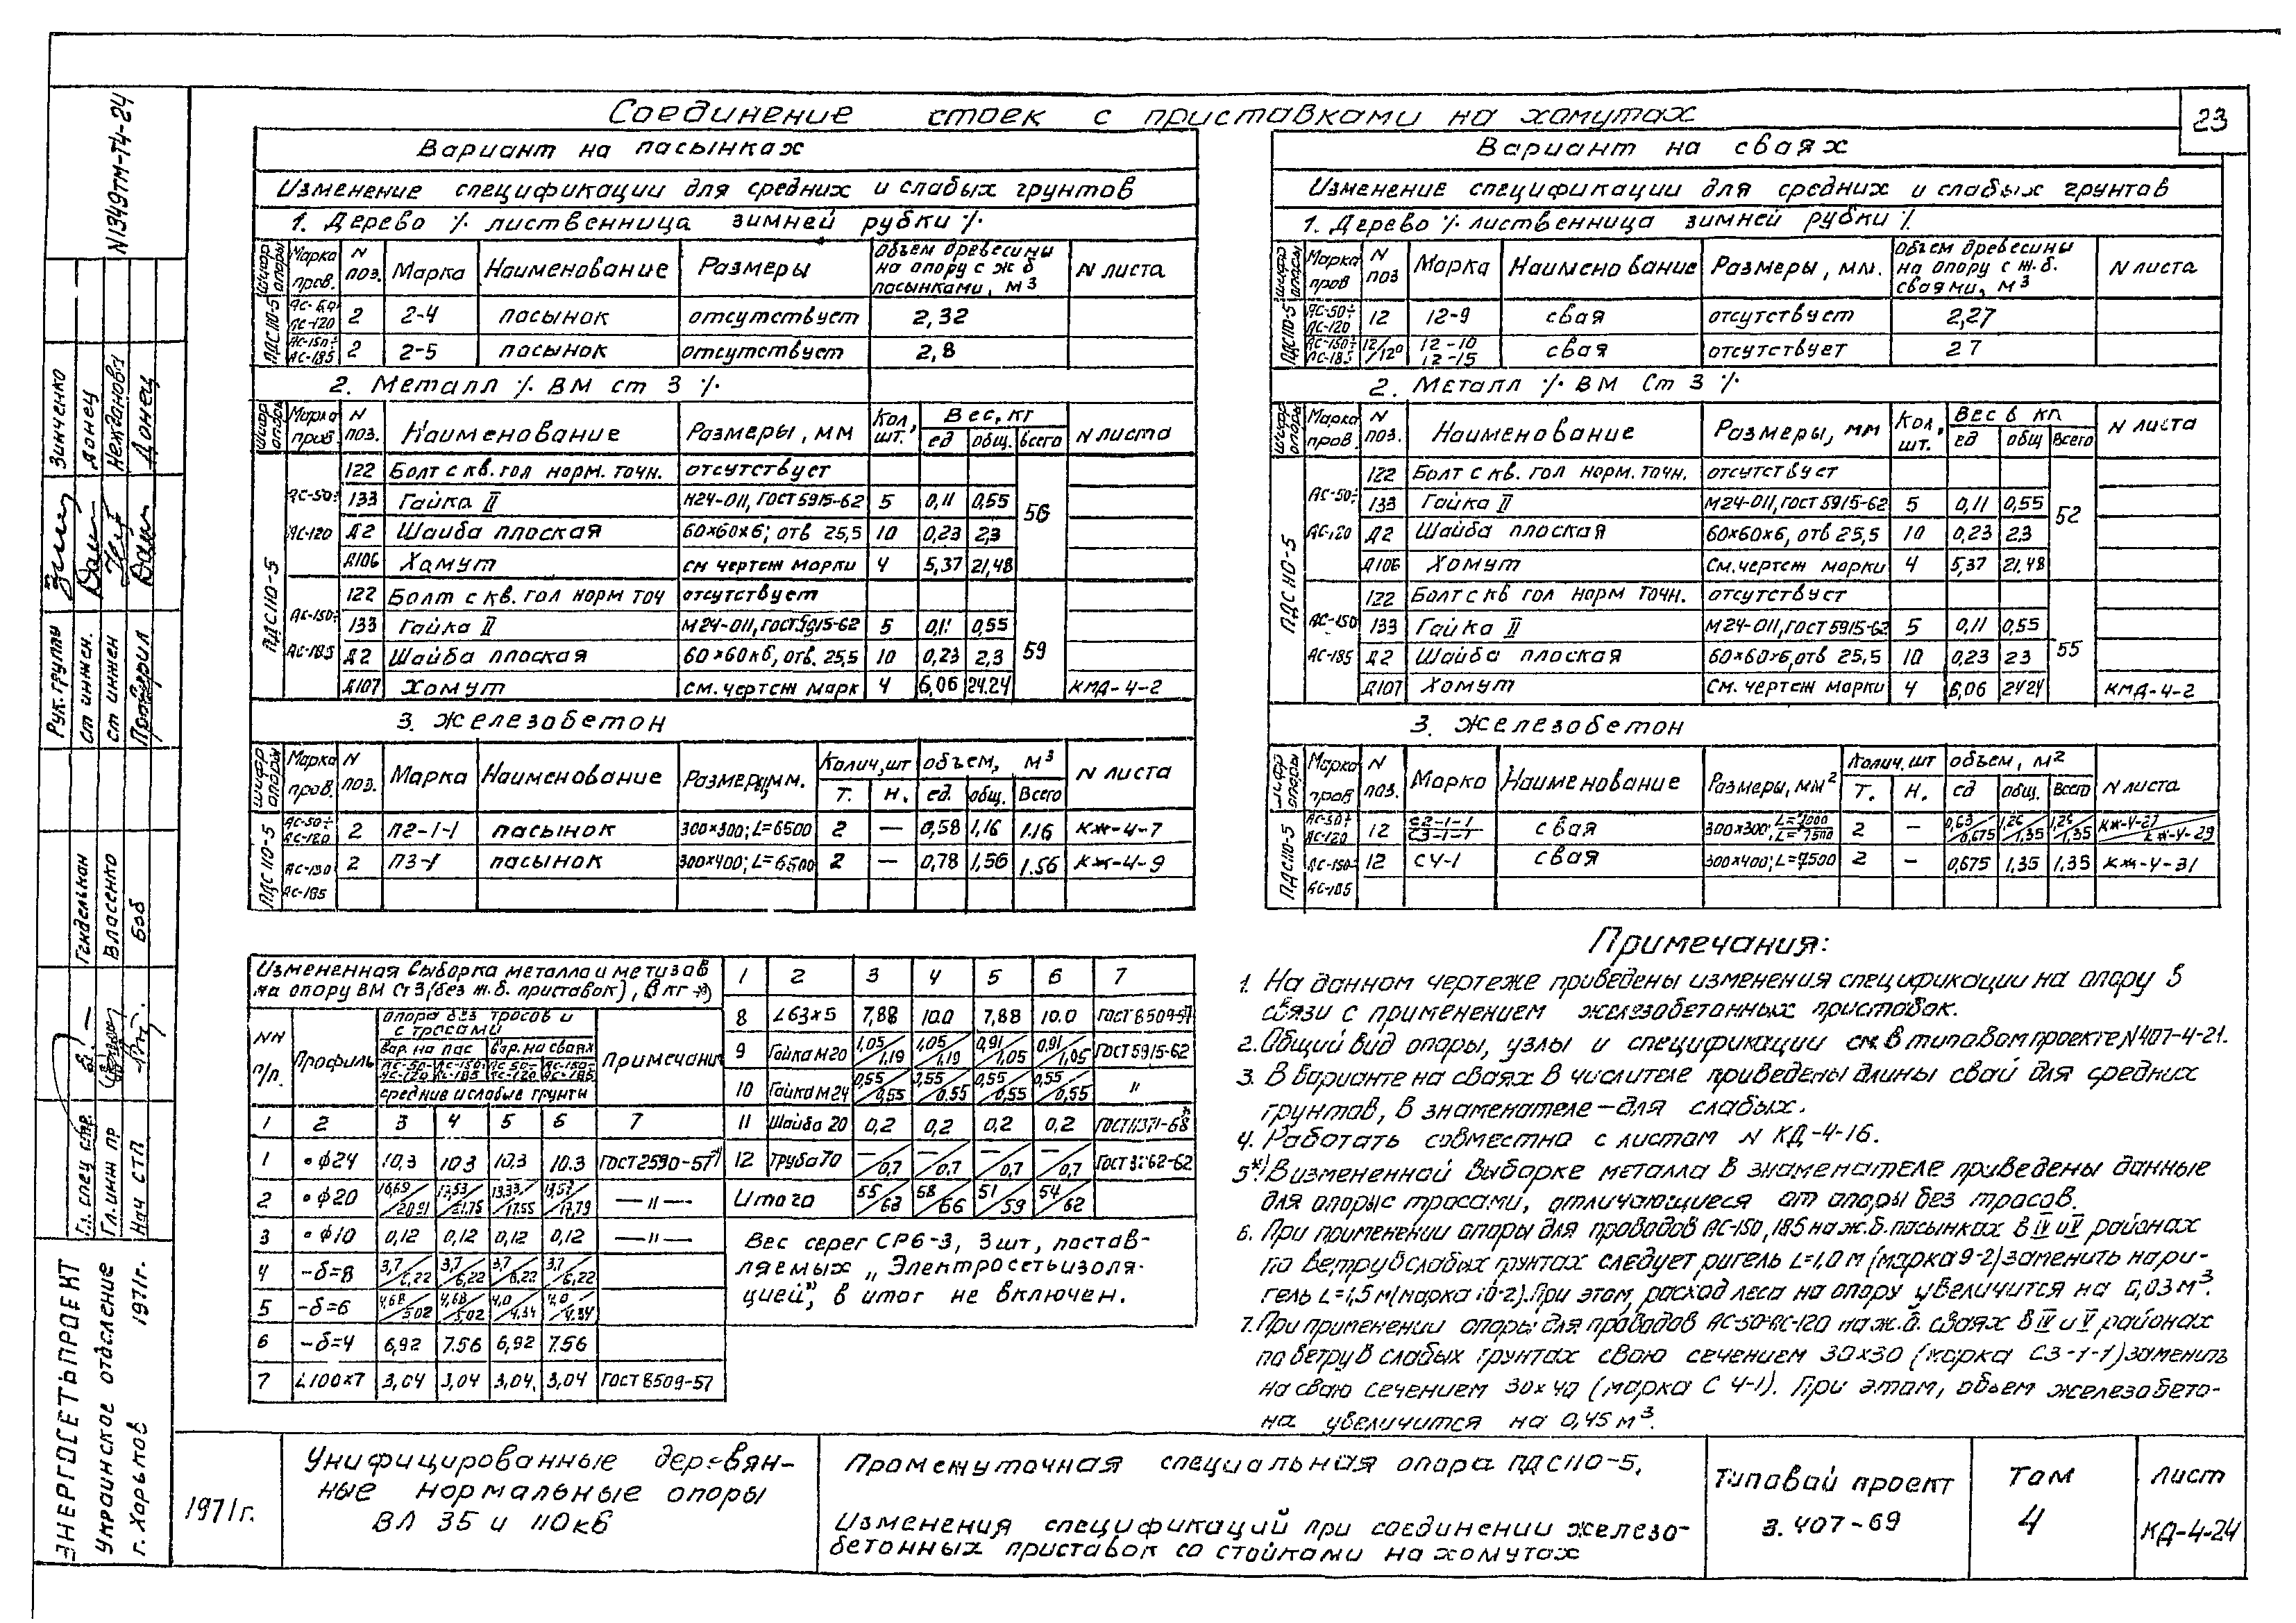 Соединение стоек с приставками на хомутах
23
Вариант на пасынках
Изменение спецификации для средних и слабых грунтов
1. Дерево ٪ лиственница зимней рубки ٪
Шифр опоры | Марка пров. | N поз. | Марка | Наименование | Размеры | Объем древесины на опору с ж б пасынками, м3 | N листа
ПДС110-5 | АС-50÷ АС-120 | 2 | 2-4 | пасынок | отсутствует | 2,32
АС-150÷ АС-185 | 2 | 2-5 | пасынок | отсутствует | 2,8
2. Металл ٪ ВМ ст 3 ٪
Шифр опоры | Марка пров | N поз. | Наименование | Размеры, мм | Кол, шт. | Вес, кг | ед | общ. | всего | N листа
ПДС110-5 | АС-50÷ АС-120 | 122 | Болт с кв. гол норм. точн. | отсутствует
133 | Гайка II | М24-011, ГОСТ 5915-62 | 5 | 0,11 | 0,55 | 56
Д2 | Шайба плоская | 60×60×6; отв 25,5 | 10 | 0,23 | 2,3
Д106 | Хомут | см чертеж марки | 4 | 5,37 | 21,48
АС-150÷ АС-185 | 122 | Болт с кв. гол норм точ | отсутствует
133 | Гайка II | М24-011, ГОСТ 5915-62 | 5 | 0,11 | 0,55 | 59
Д2 | Шайба плоская | 60×60×6, отв. 25,5 | 10 | 0,23 | 2,3
Д107 | Хомут | см. чертеж марк | 4 | 6,06 | 24.24 | КМД-4-2
3. Железобетон
Шифр опоры | Марка пров. | N поз. | Марка | Наименование | Размеры, мм. | Колич, шт | Т. | Н. | объем, м3 | ед. | общ. | Всего | N листа
ПДС 110-5 | АС-50÷ АС-120 | 2 | П2-1-1 | пасынок | 300×300; L=6500 | 2 | — | 0,58 | 1,16 | 1.16 | КЖ-4-7
АС-150 АС-185 | 2 | П3-1 | пасынок | 300×400; L=6500 | 2 | — | 0,78 | 1,56 | 1.56 | КЖ-4-9
Вариант на сваях
Изменение спецификации для средних и слабых грунтов
1. Дерево ٪ лиственница зимней рубки ٪
Шифр опоры | Марка пров | N поз | Марка | Наименование | Размеры, мм. | Объем древесины на опору с ж.б. сваями, м3 | N листа
ПДС110-5 | АС-50÷ АС-120 | 12 | 12-9 | свая | отсутствует | 2,27
АС-150÷ АС-185 | 12/12а | 12-10 12-15 | свая | отсутствует | 2 7
2. Металл ٪ ВМ Ст 3 ٪
Шифр опоры | Марка пров. | N поз. | Наименование | Размеры, мм | Кол, шт. | Вес в кг | ед | общ | Всего | N листа
ПДС110-5 | АС-50÷ АС-120 | 122 | Болт с кв. гол норм. точн. | отсутствует
133 | Гайка II | М24-011, ГОСТ 5915-62 | 5 | 0,11 | 0,55 | 52
Д2 | Шайба плоская | 60×60×6, отв 25,5 | 10 | 0,23 | 2,3
Д106 | Хомут | См. чертеж марки | 4 | 5,37 | 21,48
АС-150 АС-185 | 122 | Болт с кв гол норм точн. | отсутствует
133 | Гайка II | М24-011, ГОСТ 5915-62 | 5 | 0,11 | 0,55 | 55
Д2 | Шайба плоская | 60×60×6, отв 25,5 | 10 | 0,23 | 2 3
Д107 | Хомут | См. чертеж марки | 4 | 6,06 | 24 24 | КМД-4-2
3. Железобетон
Шифр опоры | Марка пров | N поз. | Марка | Наименование | Размеры, мм2 | Колич. шт | Т. | Н. | объем, м2 | ед | общ. | Всего | N листа
ПДС110-5 | АС-50÷ АС-120 | 12 | С2-1-1 С3-1-1 | свая | 300×300; L=7000 L=7500 | 2 | - | 0,63/0,675 | 1,26/1,35 | 1,26/1,35 | КЖ-4-27 КЖ-4-29
АС-150÷ АС-185 | 12 | С4-1 | свая | 300×400; L=7500 | 2 | - | 0,675 | 1,35 | 1,35 | КЖ-4-31
Измененная выборка металла и метизов
на опору ВМ Ст 3 (без ж.б. приставок), в кг *)
NN п/п. | Профиль | опора без тросов и с тросами | вар. на пас | вар. на сваях | АС-50- АС-120 | АС-150- АС-185 | АС 50- АС-120 | АС-150- АС-185 | средние и слабые грунты | Примечани
1 | 2 | 3 | 4 | 5 | 6 | 7
1 | ∘ ф24 | 10,3 | 10 3 | 10.3 | 10.3 | ГОСТ 2590-57
2 | ∘ ф20 | 16,69/20.91 | /21.75 | 13,33/17.55 | 13,57/17.79 | —"—
3 | ∘ ф10 | 0,12 | 0,12 | 0,12 | 0,12 | —"—
4 | -δ=8 | 3,7/6,22 | 3,7/6,22 | 3,7/6,22 | 3,7/6,22
5 | -δ=6 | 4,68/5 02 | 4,68/5,02 | 4,0/4,34 | 4,0/4.34
6 | -δ=4 | 6,92 | 7.56 | 6,92 | 7.56
7 | L100×7 | 3,04 | 3,04 | 3,04. | 3,04 | ГОСТ 8509-57
1 | 2 | 3 | 4 | 5 | 6 | 7
8 | L63×5 | 7,88 | 10.0 | 7,88 | 10.0 | ГОСТ 8509-57
9 | Гайка М20 | 1,05/1,19 | 1,05/1,19 | 0,91/1,05 | 0,91/1,05 | ГОСТ 5915-62
10 | Гайка М24 | 0,55/0,55 | 0,55/0,55 | 0,55/0,55 | 0,55/0,55 | "
11 | Шайба 20 | 0,2 | 0,2 | 0,2 | 0,2 | ГОСТ 11371-68
12 | Труба 70 | —/0,7 | —/0,7 | —/0,7 | —/0,7 | ГОСТ 3262-62
Итого | 55/63 | 58/66 | 51/59 | 54/62
Вес серег СР6-3, 3 шт, постав-
ляемых „Электросетьизоля-
цией", в итог не включен.
Примечания:
1. На данном чертеже приведены изменения спецификации на опору в
связи с применением железобетонных приставок.
2. Общий вид опоры, узлы и спецификации см. в типовом проекте N407-4-21.
3. В варианте на сваях в числителе приведены длины свай для средних
грунтов, в знаменателе—для слабых.
4. Работать совместно с листом N КД-4-16.
5*) В измененной выборке металла в знаменателе приведены данные
для опоры с тросами, отличающиеся от опоры без тросов.
6. При применении опоры для проводов АС-150, 185 на ж.б. пасынках в IV и V районах
по ветру в слабых грунтах следует ригель L=1,0 м (марка 9-2) заменить на ри-
гель L=1,5 м (марка 10-2). При этом, расход леса на опору увеличится на 0,03 м3.
7. При применении опоры для проводов АС-50-АС-120 на ж.б. сваях в IV и V районах
по ветру в слабых грунтах сваю сечением 30×30 (марка С3-1-1) заменить
на сваю сечением 30×40 (марка С 4-1). При этом, объем железобето-
на увеличится на 0,45 м3.
1971г.
Унифицированные деревян-
ные нормальные опоры
ВЛ 35 и 110 кв
Промежуточная специальная опора ПДС110-5.
Изменения спецификаций при соединении железо-
бетонных приставок со стойками на хомутах
Типовой проект
3. 407-69
Том
4
лист
КД-4-24
N1349тм-т4-24
Рук. группы Зинченко
Ст инжен. Донец
Ст инжен Нежданова
Проверил Донец
Гл. спец стр. Гендельман
Гл. инж пр Власенко
Нач СТП Боб
ЭНЕРГОСЕТЬПРОЕКТ
Украинское отделение
г. Харьков 1971г.